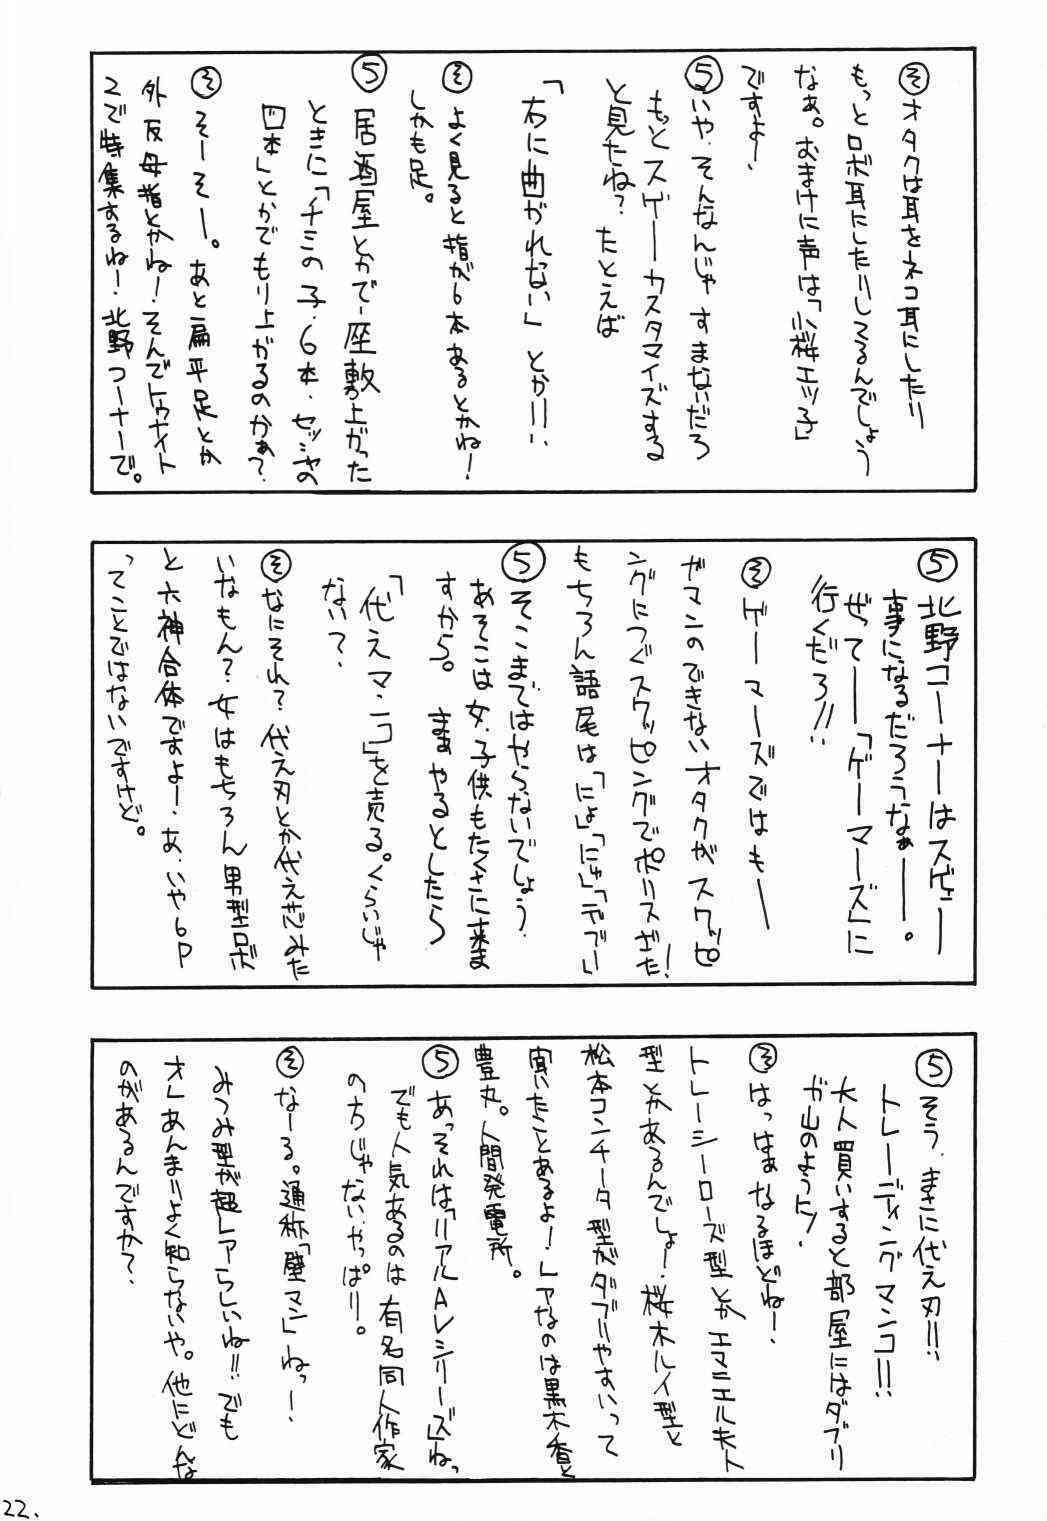 そ オタクは耳をネコ耳にしたり
もっとロボ耳にしたりしてるんでしょう
なぁ。おまけに声は「小桜エツ子」
ですよー、
5 いや、そんなんじゃすまないだろ
もっとスゲーカスタマイズする
と見たね?たとえば
「右に曲がれない」とか!!、
そ よく見ると指が6本あるとかね!
しかも足。
5 居酒屋とかで座敷が上がった
ときに「チミの子、6本、セッシャの
四本」とかでもり上がるのかぁ?
そ そーそー。あと扁平足とか
外反母指とかね!そんでトゥナイト
2で特集するね!北野コーナーで。
5 北野コーナーはスゲェー
事になるだろうなぁー。
ぜってー「ゲーマーズ」に
行くだろ!!
そ ゲーマーズではもー
ガマンのできないオタクがスワッピ
ングにつぐスワッピングでポリスざた!
もちろん語尾は「にょ」「にゅ」「でプー」
5 そこまではやらないでしょう。
あそこは女、子供もたくさに来ま
すから。まぁやるとしたら
「代えマンコ」を売る。くらいじゃ
ない?、
そ なにそれ?代え刃とか代え芯みた
いなもん?女はもちろん男型ロボ
と六神合体ですよー、あ、いや6P
ってことではないですけど。
5 そう、まさに代え刃!!
トレーディングマンコ!!
大人買いすると部屋にはダブリ
が山のように!
そ はっはぁなるほどねー、
トレーシーローズ型とかエマニエル夫人
型とかあるんでしょー、桜木ルイ型と
松本コンチータ型がダブりやすいって
聞いたことあるよー、レアなのは黒木香と
豊丸。人間発電所。
5 あっそれは「リアルAVシリーズ」ねっ
でも人気あるのは有名同人作家
の方じゃないやっぱり。
そ なーる。通称「壁マン」ねっー、
みつみ型が超レアらしいね!!でも
オレあんまりよく知らないや。他にどんな
のがあるんですか?、
22.